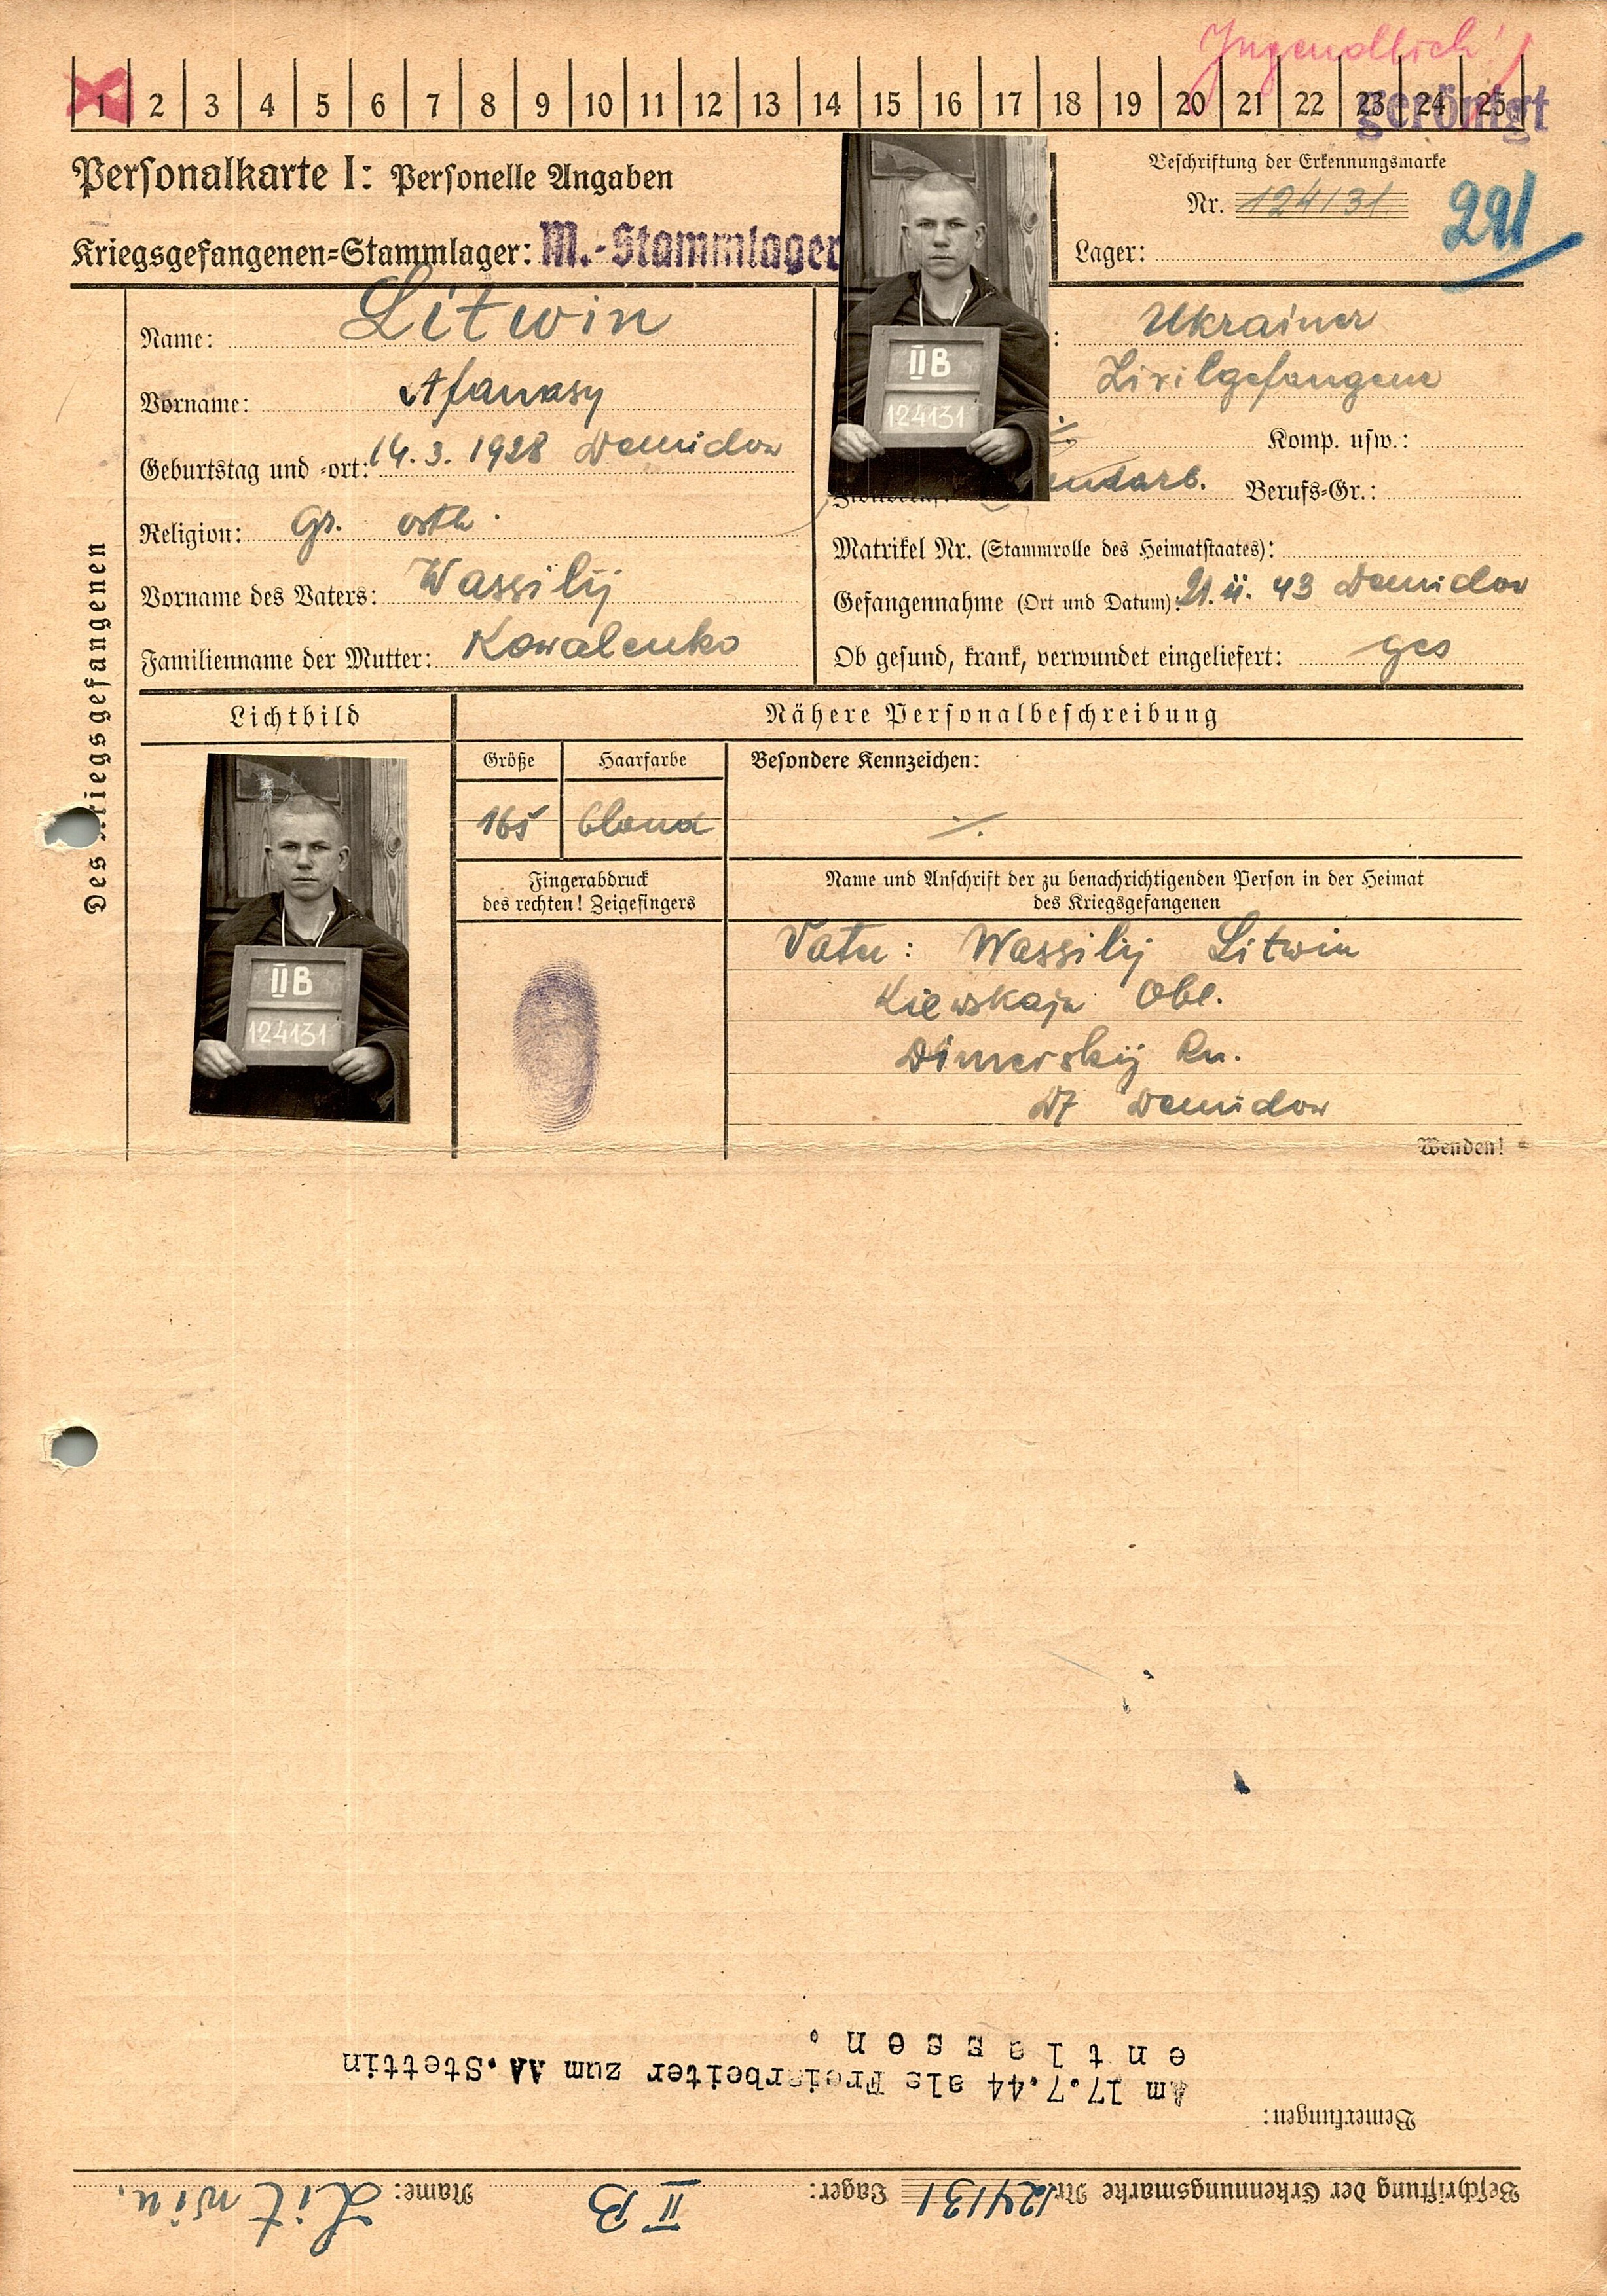 Jugendlich!
1 2 3 4 5 6 7 8 9 10 11 12 13 14 15 16 17 18 19 20 21 22 23 24 25
geröntgt
Personalkarte I: Personelle Angaben
Kriegsgefangenen=Stammlager: M.-Stammlager
Beschriftung der Erkennungsmarke
Nr. 124131
Lager:
291
Des Kriegsgefangenen
Name: Litwin
Vorname: Afanasy
Geburtstag und =ort: 14. 3. 1928 Demidow
Religion: Gr. orth.
Vorname des Vaters: Wassilij
Familienname der Mutter: Kowalenko
II B
124131
: Ukrainer
Zivilgefangene
Komp. usw.:
Berufs=Gr.:
Matrikel Nr. (Stammrolle des Heimatstaates):
Gefangennahme (Ort und Datum): 21. ii. 43 Demidow
Ob gesund, krank, verwundet eingeliefert: ges
Lichtbild
II B
124131
Nähere Personalbeschreibung
Größe Haarfarbe Besondere Kennzeichen:
165 blond ./.
Fingerabdruck
des rechten! Zeigefingers
Name und Anschrift der zu benachrichtigenden Person in der Heimat
des Kriegsgefangenen
Vater: Wassilij Litwin
Kiewskaja Obl.
Dimerskij Rn.
Df Demidow
Wenden!
Beschriftung der Erkennungsmarke Nr. 124131 Lager: II B Name: Litwin.
Bemerkungen:
Am 17.7.44 als Freiarbeiter zum AA.Stettin
entlassen.